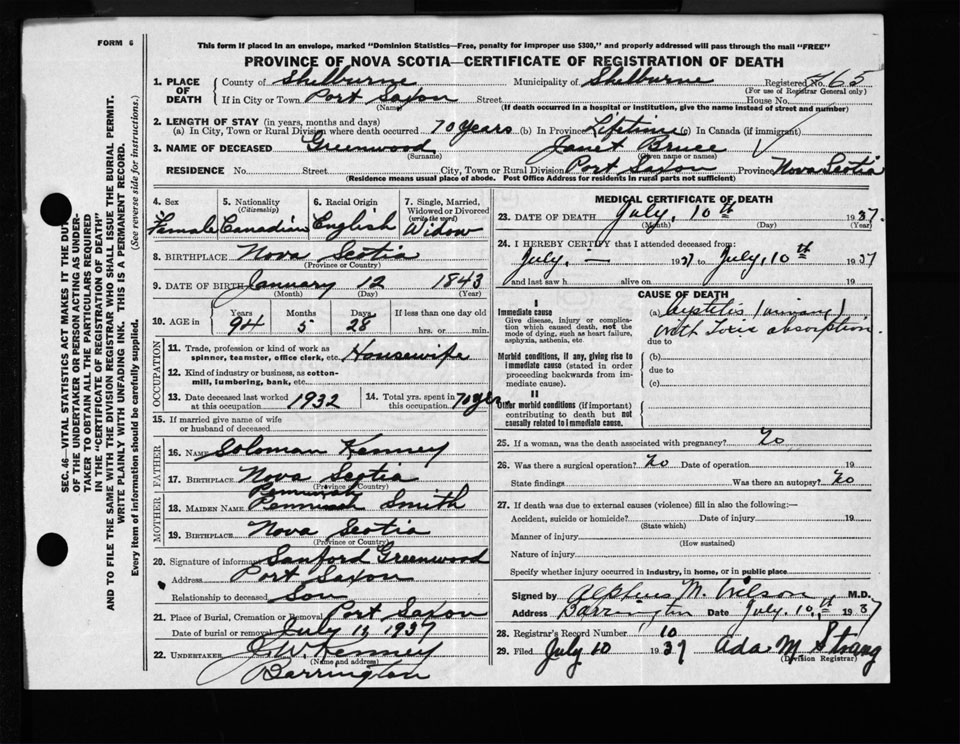 FORM 6
This form if placed in an envelope, marked "Dominion Statistics—Free, penalty for improper use $300," and properly addressed will pass through the mail "FREE"
PROVINCE OF NOVA SCOTIA—CERTIFICATE OF REGISTRATION OF DEATH
1. PLACE OF DEATH
County of Shelburne Municipality of Shelburne Registered No. 765
(For use of Registrar General only)
If in City or Town Port Saxon Street House No.
(Name) (If death occurred in a hospital or institution, give the name instead of street and number)
2. LENGTH OF STAY (in years, months and days)
(a) In City, Town or Rural Division where death occurred 70 years (b) In Province Lifetime (c) In Canada (if immigrant)
3. NAME OF DECEASED Greenwood Janet Bruce
(Surname) (Given name or names)
RESIDENCE No. Street City, Town or Rural Division Port Saxon Province Nova Scotia
(Residence means usual place of abode. Post Office Address for residents in rural parts not sufficient)
SEC. 46—VITAL STATISTICS ACT MAKES IT THE DUTY
OF THE UNDERTAKER OR PERSON ACTING AS UNDER-
TAKER TO OBTAIN ALL THE PARTICULARS REQUIRED
IN THE "CERTIFICATE OF REGISTRATION OF DEATH"
AND TO FILE THE SAME WITH THE DIVISION REGISTRAR WHO SHALL ISSUE THE BURIAL PERMIT.
WRITE PLAINLY WITH UNFADING INK. THIS IS A PERMANENT RECORD.
Every item of information should be carefully supplied. (See reverse side for instructions.)
4. Sex 5. Nationality 6. Racial Origin 7. Single, Married, Widowed or Divorced
(Citizenship) (write the word)
Female Canadian English Widow
8. BIRTHPLACE Nova Scotia
(Province or Country)
9. DATE OF BIRTH January 12 1843
(Month) (Day) (Year)
10. AGE in Years Months Days If less than one day old
94 5 28 hrs. or min.
OCCUPATION
11. Trade, profession or kind of work as spinner, teamster, office clerk, etc. Housewife
12. Kind of industry or business, as cotton-mill, lumbering, bank, etc.
13. Date deceased last worked at this occupation 1932
14. Total yrs. spent in this occupation 70 yrs.
15. If married give name of wife or husband of deceased
FATHER
16. NAME Soloman Kenney
17. BIRTHPLACE Nova Scotia
(Province or Country)
MOTHER
18. MAIDEN NAME Smith
19. BIRTHPLACE Nova Scotia
(Province or Country)
20. Signature of informant Sanford Greenwood
Address Port Saxon
Relationship to deceased Son
21. Place of Burial, Cremation or Removal Port Saxon
Date of burial or removal July 1937
22. UNDERTAKER J. W. Kenney
(Name and address)
Barrington
MEDICAL CERTIFICATE OF DEATH
23. DATE OF DEATH July, 10th 1937
(Month) (Day) (Year)
24. I HEREBY CERTIFY that I attended deceased from:
July, — 1937 to July, 10th 1937
and last saw h alive on 19
CAUSE OF DEATH
I
Immediate cause
Give disease, injury or complication which caused death, not the mode of dying, such as heart failure, asphyxia, asthenia, etc.
(a)
with Toxic absorption.
due to
Morbid conditions, if any, giving rise to immediate cause (stated in order proceeding backwards from immediate cause).
(b)
due to
(c)
II
Other morbid conditions (if important) contributing to death but not causally related to immediate cause.
25. If a woman, was the death associated with pregnancy? No
26. Was there a surgical operation? No Date of operation 19
State findings Was there an autopsy? No
27. If death was due to external causes (violence) fill in also the following:—
Accident, suicide or homicide? Date of injury 19
(State which)
Manner of injury
(How sustained)
Nature of injury
Specify whether injury occurred in industry, in home, or in public place
Signed by Alpheus M. Wilson M.D.
Address Barrington Date July, 10th 1937
28. Registrar's Record Number 10
29. Filed July 10 1937 Ada M Strang
(Division Registrar)